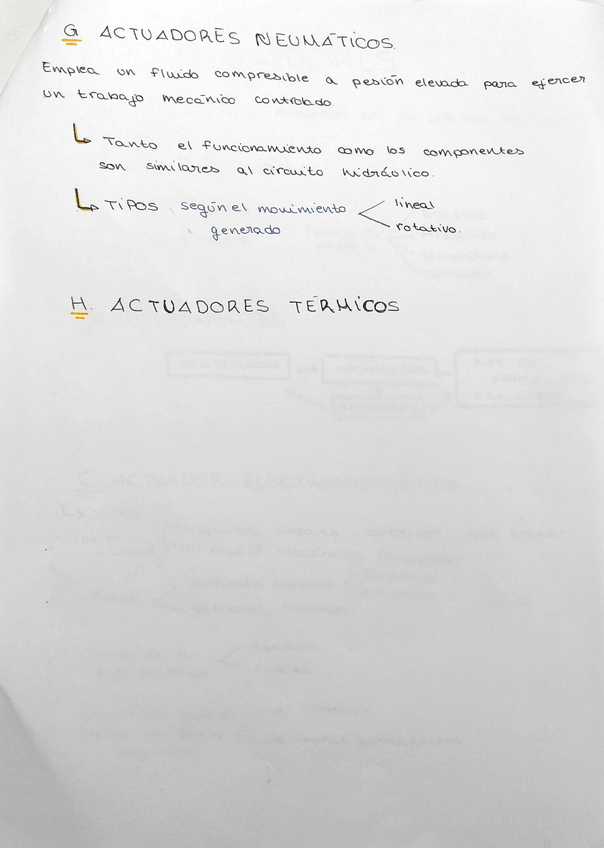 G ACTUADORES NEUMÁTICOS.
Emplea un fluido compresible a pesión elevada para ejercer
un trabajo mecánico controlado
↳ Tanto el funcionamiento como los componentes
son similares al circuito hidráulico.
↳ TIPOS según el movimiento lineal
generado rotativo.
H. ACTUADORES TÉRMICOS